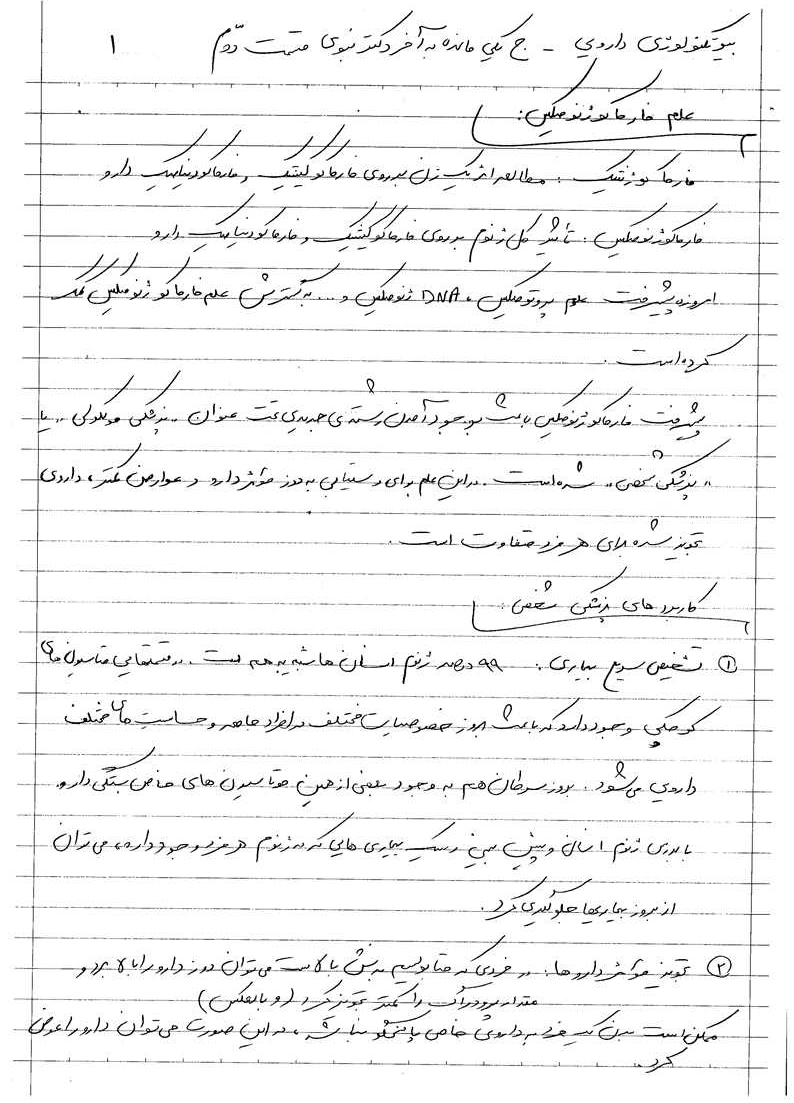 بیوتکنولوژی دارویی - ج یکی مانده به آخر دکتر نبوی قسمت دوم ۱
علم فارماکوژنومیکس:
فارماکوژنتیک: مطالعه اثر یک ژن بر روی فارماکوکینتیک و فارماکودینامیک دارو
فارماکوژنومیکس: تأثیر کل ژنوم بر روی فارماکوکینتیک و فارماکودینامیک دارو
امروزه پیشرفت علم پروتومیکس، DNA ژنومیکس و... به گسترش علم فارماکوژنومیکس کمک
کرده است.
پیشرفت فارماکوژنومیکس باعث بوجود آمدن رشته‌ی جدیدی تحت عنوان "پزشکی مولکولی" یا
"پزشکی شخصی" شده است. در این علم برای دستیابی به دوز مؤثر دارو و عوارض کمتر، داروی
تجویز شده برای هر فرد متفاوت است.
کاربردهای پزشکی شخصی:
① تشخیص سریع بیماری: ۹۹ درصد ژنوم انسان‌ها شبیه به هم است. در قسمتهایی موتاسیون‌های
کوچکی وجود دارد که باعث بروز خصوصیات مختلف در افراد جامعه و حساسیت‌های مختلف
دارویی می‌شود. بروز سرطان هم به وجود بعضی از همین موتاسیون‌های خاص بستگی دارد.
با بررسی ژنوم انسان و پیش بینی ریسک بیماری هایی که در ژنوم هر فرد وجود دارد، می‌توان
از بروز بیماریها جلوگیری کرد.
② تجویز مؤثر داروها: در فردی که متابولیسم بدنش بالاست می‌توان دوز دارو را بالا برد و
مقدار پرودراگ را کمتر تجویز کرد (و بالعکس)
ممکن است بدن یک فرد به داروی خاصی پاسخگو نباشد، در این صورت می‌توان دارو را عوض
کرد.